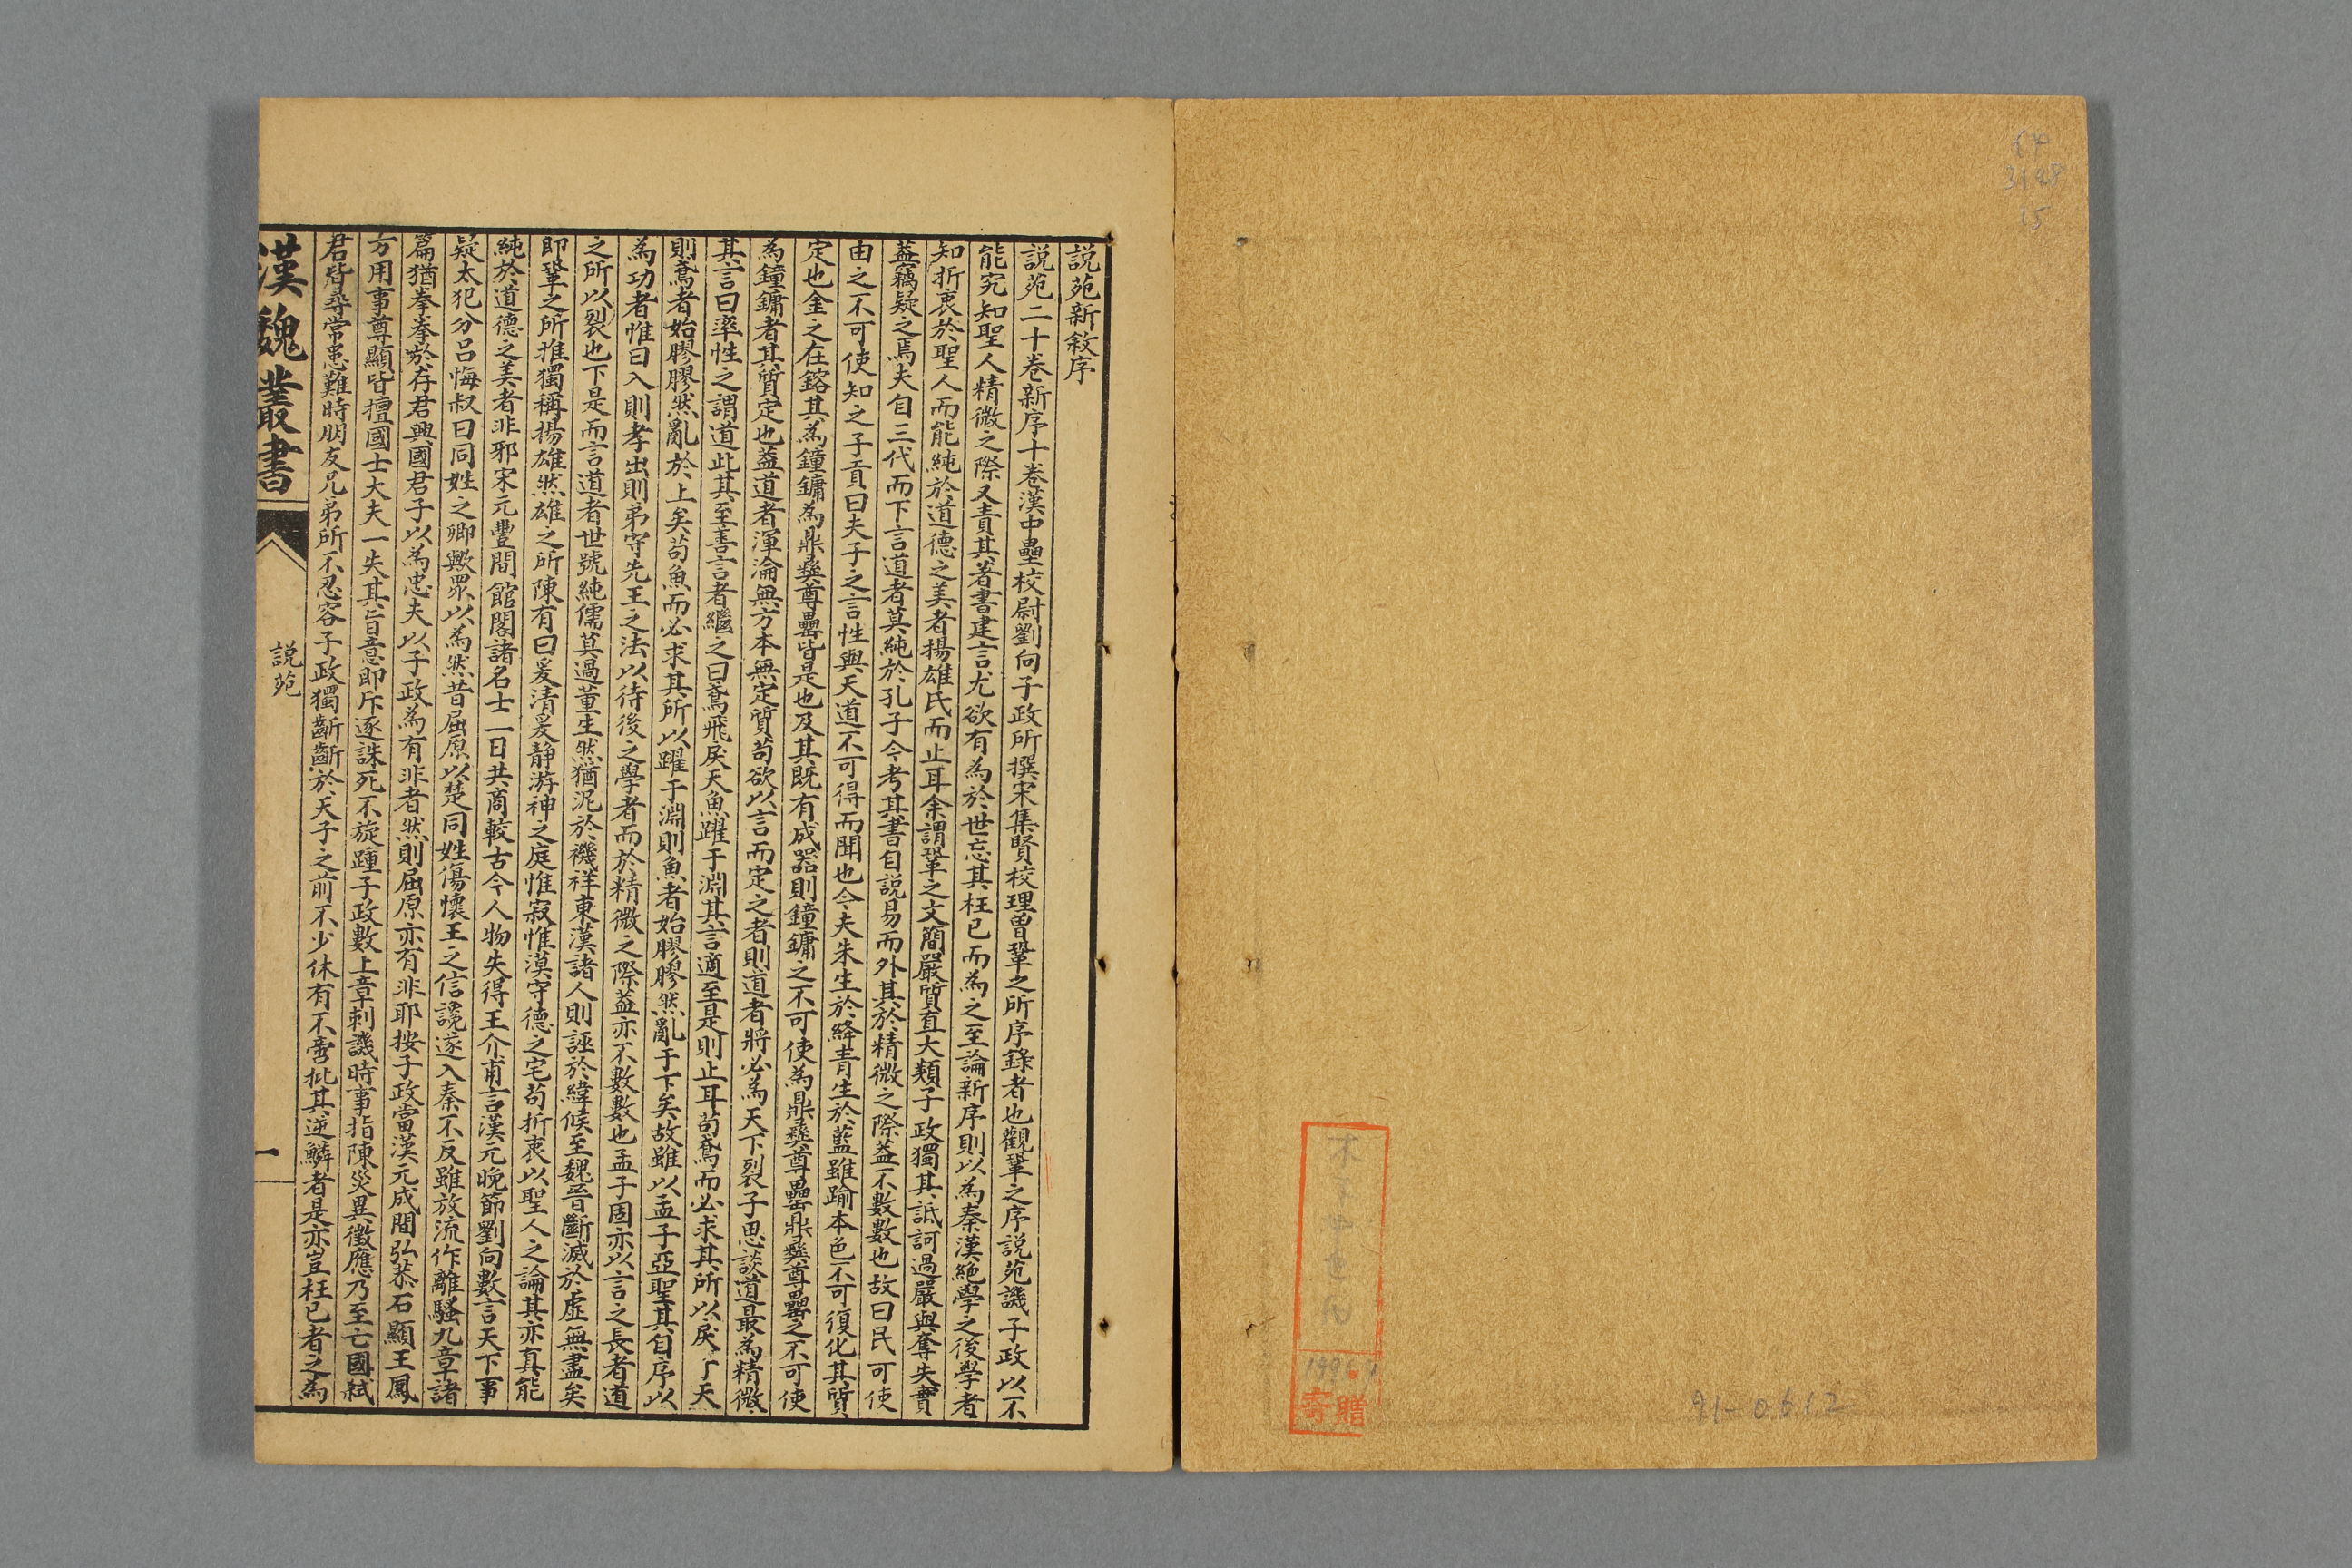 説苑新敘序
説苑二十卷新序十卷漢中壘校尉劉向子政所撰宋集賢校理曾鞏之所序錄者也觀鞏之序説苑譏子政以不
能究知聖人精微之際又責其著書建言尤欲有為於世忘其枉己而為之至論新序則以為秦漢絶學之後學者
知折衷於聖人而能純於道德之美者揚雄氏而止耳余謂鞏之文簡嚴質直大類子政獨其詆訶過嚴與奪失實
葢竊疑之焉夫自三代而下言道者莫純於孔子今考其書自説易而外其於精微之際葢不數數也故曰民可使
由之不可使知之子貢曰夫子之言性與天道不可得而聞也今夫朱生於絳青生於藍雖踰本色不可復化其質
定也金之在鎔其為鐘鏞為鼎彝尊罍皆是也及其既有成器則鐘鏞之不可使為鼎彝尊罍鼎彝尊罍之不可使
為鐘鏞者其質定也葢道者渾淪無方本無定質茍欲以言而定之者則道者將必為天下裂子思談道最為精微
其言曰率性之謂道此其至善言者繼之曰鳶飛戾天魚躍于淵其言適至是則止耳茍鳶而必求其所以戾了天
則鳶者始膠膠然亂於上矣茍魚而必求其所以躍于淵則魚者始膠膠然亂于下矣故雖以孟子亞聖其自序以
為功者惟曰入則孝出則弟守先王之法以待後之學者而於精微之際葢亦不數數也孟子固亦以言之長者道
之所以裂也下是而言道者世號純儒莫過董生然猶泥於禨祥東漢諸人則誣於緯候至魏晉斷滅於虛無盡矣
即鞏之所推獨稱揚雄然雄之所陳有曰爰清爰静游神之庭惟寂惟漠守德之宅茍折衷以聖人之論其亦真能
純於道德之美者非邪宋元豐間館閣諸名士一日共商較古今人物失得王介甫言漢元晚節劉向數言天下事
疑太犯分呂悔叔曰同姓之卿歟眾以為然昔屈原以楚同姓傷懷王之信讒遂入秦不反雖放流作離騷九章諸
篇猶拳拳於存君興國君子以為忠夫以子政為有非者然則屈原亦有非耶按子政當漢元成間弘恭石顯王鳳
方用事尊顯皆擅國士大夫一失其旨意即斥逐誅死不旋踵子政數上章刺譏時事指陳災異徵應乃至亡國弑
君皆尋常患難時朋友兄弟所不忍容子政獨齗齗於天子之前不少休有不啻批其逆鱗者是亦豈枉己者之為
漢魏叢書
説苑
一
寄贈
91-0612